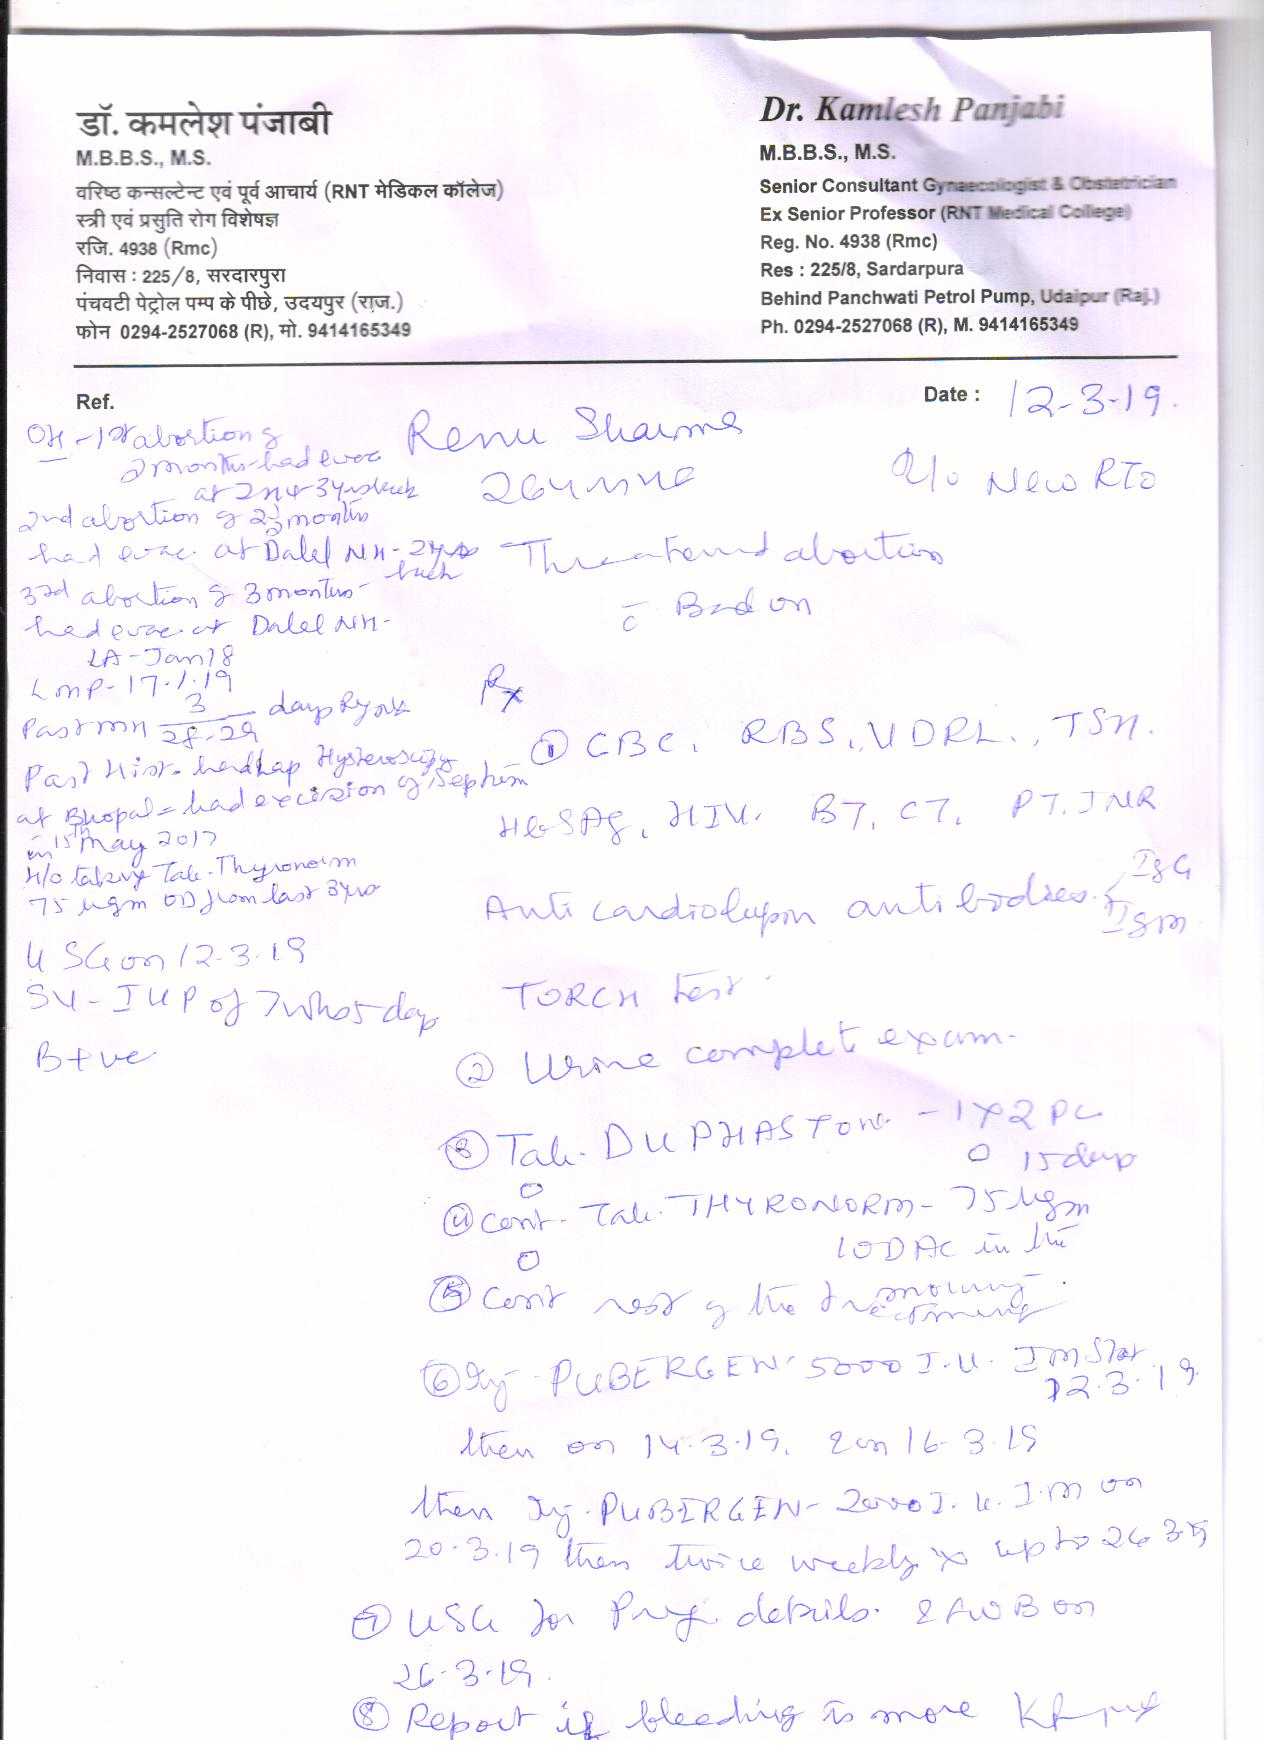 डॉ. कमलेश पंजाबी
M.B.B.S., M.S.
वरिष्ठ कन्सल्टेन्ट एवं पूर्व आचार्य (RNT मेडिकल कॉलेज)
स्त्री एवं प्रसुति रोग विशेषज्ञ
रजि. 4938 (Rmc)
निवास : 225/8, सरदारपुरा
पंचवटी पेट्रोल पम्प के पीछे, उदयपुर (राज.)
फोन 0294-2527068 (R), मो. 9414165349
Dr. Kamlesh Panjabi
M.B.B.S., M.S.
Senior Consultant Gynaecologist & Obstetrician
Ex Senior Professor (RNT Medical College)
Reg. No. 4938 (Rmc)
Res : 225/8, Sardarpura
Behind Panchwati Petrol Pump, Udaipur (Raj.)
Ph. 0294-2527068 (R), M. 9414165349
Ref.
Date : 12-3-19.
Renu Sharma
R/o New RTO
OH - 1st abortion of
2 months had evac
at 3yrs back
2nd abortion of 2½ months
had evac. at Dalel NH - 2yrs
back
3rd abortion of 3 months -
had evac. at Dalel NH -
LA - Jan 18
LMP - 17.1.19
Past MH 3/28-29 days
Past Hist - had Lap Hysteroscopy
at Bhopal = had excision of septum
in 15th May 2017
H/o taking Tab. Thyronorm
75 ugm OD from last 3yrs
USG on 12.3.19
SU - IUP of 7wks 5 days
B +ve
Threatened abortion
c̄ Bad OH
Rx
① CBC, RBS, VDRL, TSH.
HbSAg, HIV, BT, CT, PT, INR
Anti cardiolipin antibodies < IgG
IgM
TORCH test.
② Urine complete exam.
③ Tab. DUPHASTON - 1 x 2 PC
15 days
④ Cont. Tab. THYRONORM - 75 ugm
1 OD AC in the
morning.
⑤ Cont rest of the treatment
⑥ Inj. PUBERGEN 5000 I.U. IM Stat
12.3.19
then on 14.3.19. & on 16.3.19
then Inj. PUBERGEN - 2000 I.U. I.M on
20.3.19 then twice weekly x up to 26.3.19
⑦ USG for Preg. details. & AWB on
26.3.19.
⑧ Report if bleeding is more